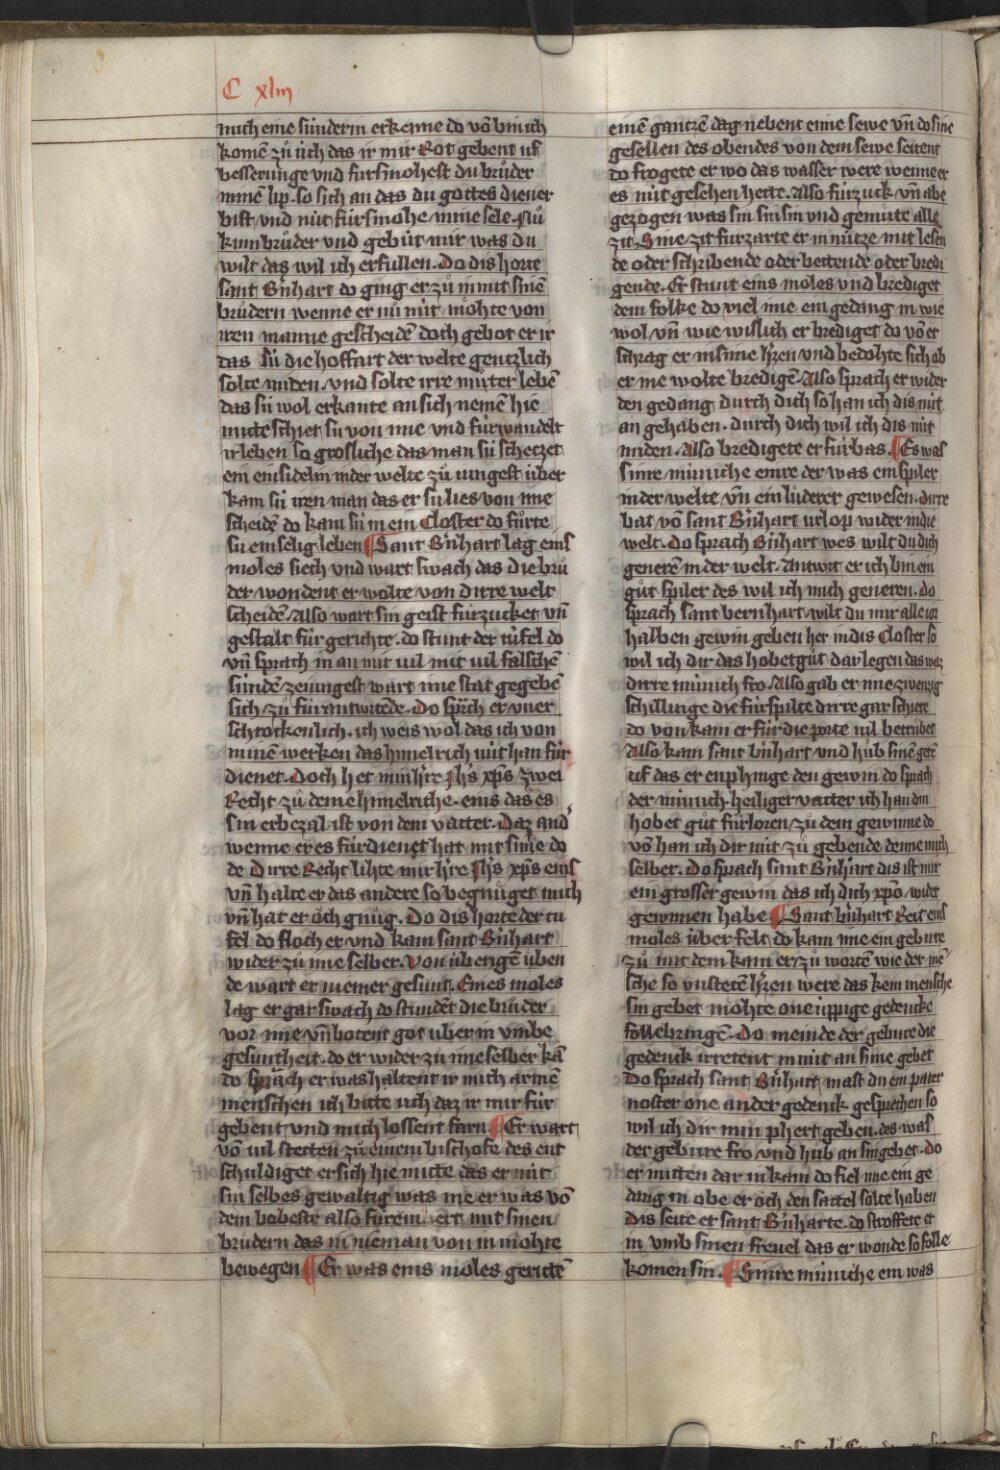 C xliij
mich eine sünderin erkenne do võ bin ich
komē zů üch das ir mir Rot gebent uf
besserunge vnd fürsmohest du brůder
minē lip · so sich an das du gottes diener
bist vnd nüt fürsmohe mine sele · Nů
kum brůder vnd gebüt mir was du
wilt das wil ich erfullen · Do dis horte
sant B'nhart do ging er zů ir mit sinē
brůdern wenne er nů nüt möhte von
iren manne gescheidē doch gebot er ir
das sü die hoffart der welte gentzlich
solte miden · vnd solte irre můter lebē
das sü wol erkante an sich nemē hie
mitte schiet sü von ime vnd fürwandelt
ir leben so grosliche das man sü schetzet
ein einsidelin in der welte zů iungest über
kam sü iren man das er sü lies von ime
scheidē do kam sü in ein Closter do fůrte
sü ein selig leben ¶ Sant B'nhart lag eins
moles siech vnd wart swach das die brů
der wondent er wolte von dirre welt
scheidē · Also wart sin geist fürzucket vñ
gestalt für gerichte · do stunt der tüfel do
vñ sprach in an mit uil mit uil falschē
sündē zeiungest wart ime stat gegebē
sich zů fürantwrtede · Do sp'ch er vner
schrockenlich · ich weis wol das ich von
minē werken das himelrich nüt han für
dienet · Doch het min h're Jh's xp̄s zwei
Recht zů deme himelriche · eins das es
sin erbezal ist von dem vatter · Daz and'
wenne er es fürdienet hat mit sime do
de Dirre Recht lihte mir h're Jh's xp̄s eins
vñ halte er das andere so begnůget mich
vñ hat er öch gnůg · Do dis horte der tü
fel do floch er vnd kam sant B'nhart
wider zů ime selber · Von übengē üben
de wart er niemer gesunt · Eines moles
lag er gar swach do stundēt die brůder
vor ime vñ botent got uber in vmbe
gesuntheit · do er wider zů ime selber kā
do sprach er was haltent ir mich armē
menschen ich bitte üch daz ir mir für
gebent vnd mich lossent farn ¶ Er wart
võ uil stetten zů einem bischofe des ent
schuldiget er sich hie mitte das er nüt
sin selbes gewaltig was me er was võ
dem bobeste also mit sinen
brůdern das in nieman von in möhte
bewegen ¶ Er was eins moles gerittē
einē gantzē dag nebent eime sewe vñ do sine
gesellen des obendes von dem sewe seitent
do frogete er wo das wasser were wenne er
es nüt gesehen hette · Also fürzuckt vñ abe
gezogen was sin sinsin vnd gemůte alle
zit · Sine zit fürzarte er in nütze mit lesen
de oder schribende oder bettende oder bredi
gende · Er stunt eins moles vnd brediget
dem folke do viel ime ein gedang in wie
wol vñ wie wislich er brediget do võ er
schrag er in sime h'zen vnd bedohte sich ob
er me wolte bredigē · Also sprach er wider
den gedang durch dich so han ich dis nüt
an gehaben · durch dich wil ich dis nüt
miden · Also bredigete er fürbas ¶ Es was
sinre müniche einre der was ein spiler
in der welte vñ ein lüderer gewesen · dirre
bat võ sant B'nhart urlop wider in die
welt · Do sprach B'nhart wes wilt du dich
generē in der welt · Antwrt er ich bin ein
gůt spiler des wil ich mich generen · do
sprach sant bernhart wilt du mir alle ior
halben gewin geben her in dis Closter so
wil ich dir das hobetgůt dar legen das waz
dirre münich fro · Also gab er ime zwenzig
schillinge die fürspilte dirre gar schiere
do von kam er für die porte uil betrübet
Also kam sant b'nhart vnd hůb sinē gerē
uf das er enphinge den gewin do sprach
der münich · heiliger vatter ich han din
hobet gůt fürloren zů dem gewinne do
võ han ich dir nüt zů gebende denne mich
selber · Do sprach sant B'nhart dis ist mir
ein grosser gewin das ich dich xp̄o wider
gewinnen habe ¶ Sant b'nhart Reit eins
moles über felt do kam ime ein gebure
zů mit dem kam er zů wortē wie der mē
sche so vnstetē h'zen were das kein mensche
sin gebet möhte one üppige gedencke
follebringē · Do meinde der gebure die
gedenck irretent in nüt an sime gebet
Do sprach sant B'nhart maht du ein pater
noster one ander gedenck gesprechen so
wil ich dir min phert geben · des was
der gebure fro vnd hůb an sin gebet · Do
er mitten dar in kam do fiel ime ein ge
dang in obe er öch den sattel solte haben
Dis seite er sant B'nharte · do stroffete er
in vmb sinen freuel das er wonde so folle
komen sin · ¶ Sinre müniche ein was